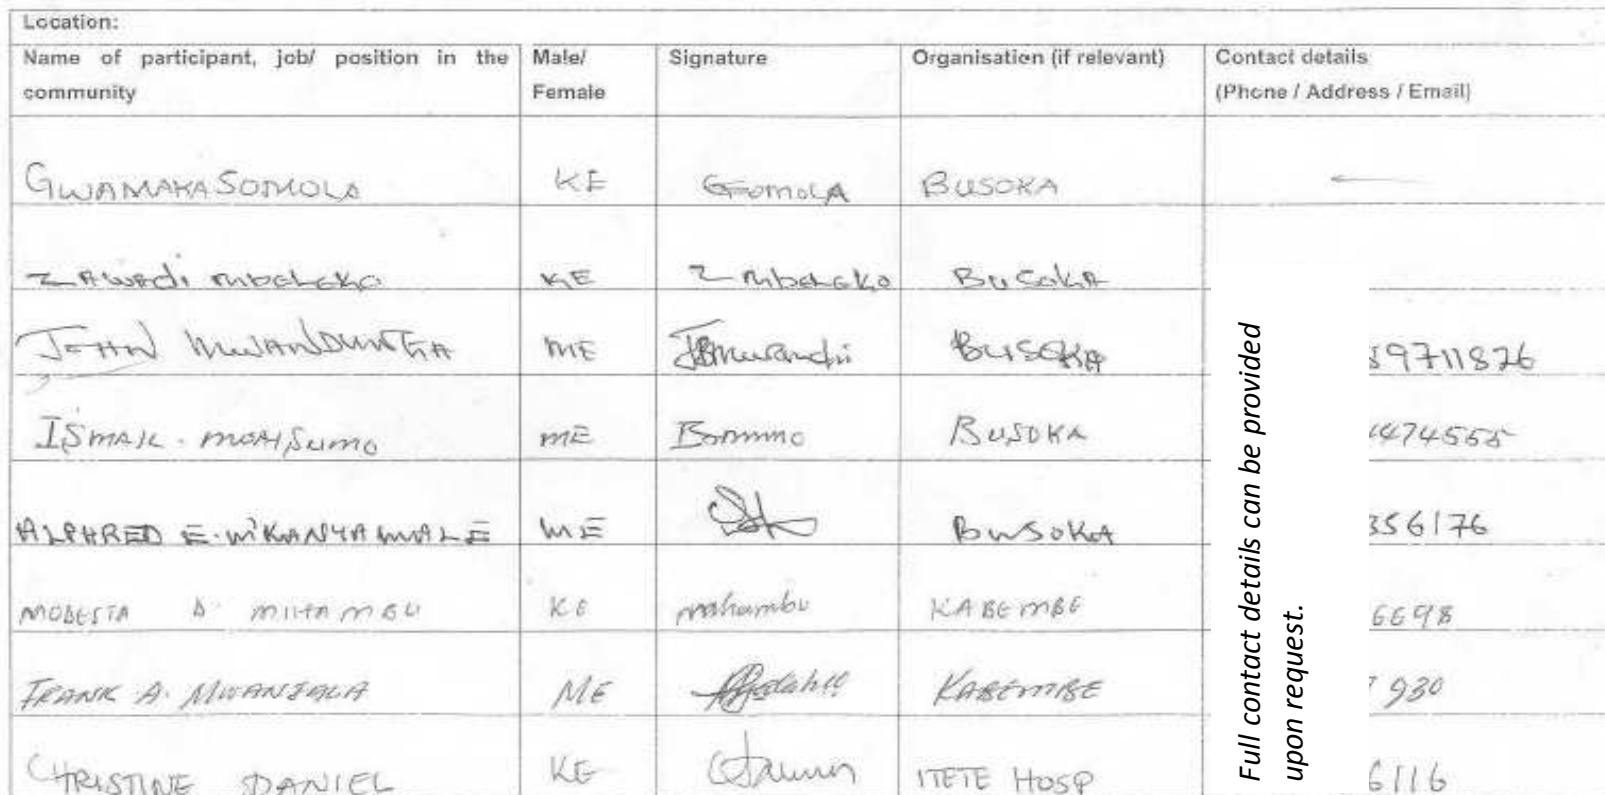 Location:
Name of participant, job/ position in the community Male/ Female Signature Organisation (if relevant) Contact details (Phone / Address / Email)
GWAMAKA SOMOLA KE GSomola BUSOKA
ZAWADI mbeleko KE Z mbeleko BUSOKA
JOHN MWANDUNGA ME BUSOKA 9711826
ISMAIL ME BUSOKA 474555
ALPHRED E. MWAKANYAMALE ME BUSOKA 356176
MODESTA D. MIHAMBU KE mahambu KABEMBE 6698
FRANK A. ME KABEMBE 930
CHRISTINE DANIEL KE ITETE HOSP 6116
Full contact details can be provided
upon request.